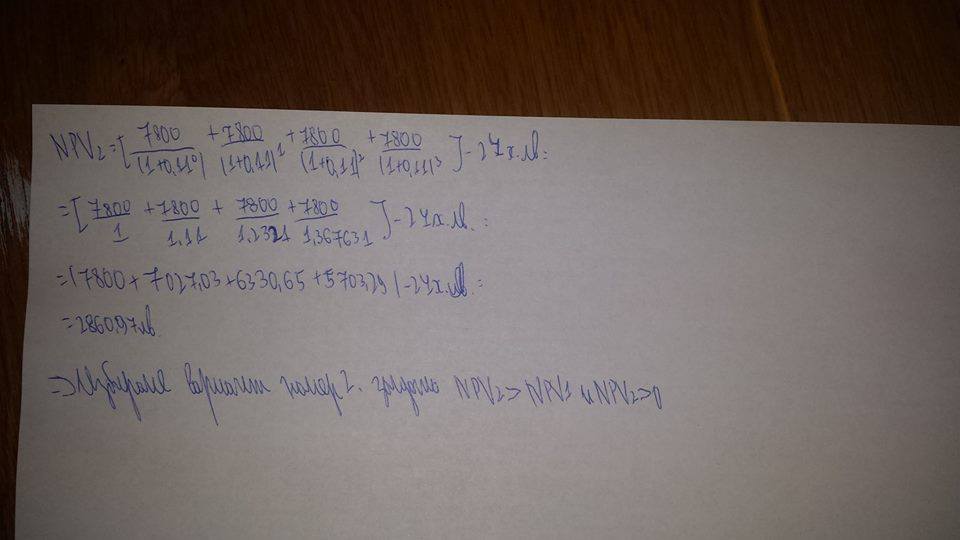 NPV₂=[7800/(1+0,11⁰) + 7800/(1+0,11)¹ + 7800/(1+0,11)² + 7800/(1+0,11)³]-24х.лв=
=[7800/1 + 7800/1,11 + 7800/1,2321 + 7800/1,367631]-24х.лв.=
=(7800+7027,03+6330,65+5703,29)-24х.лв.=
=2860,97лв.
=>Избираме вариант номер 2. защото NPV₂>NPV1 и NPV₂>0